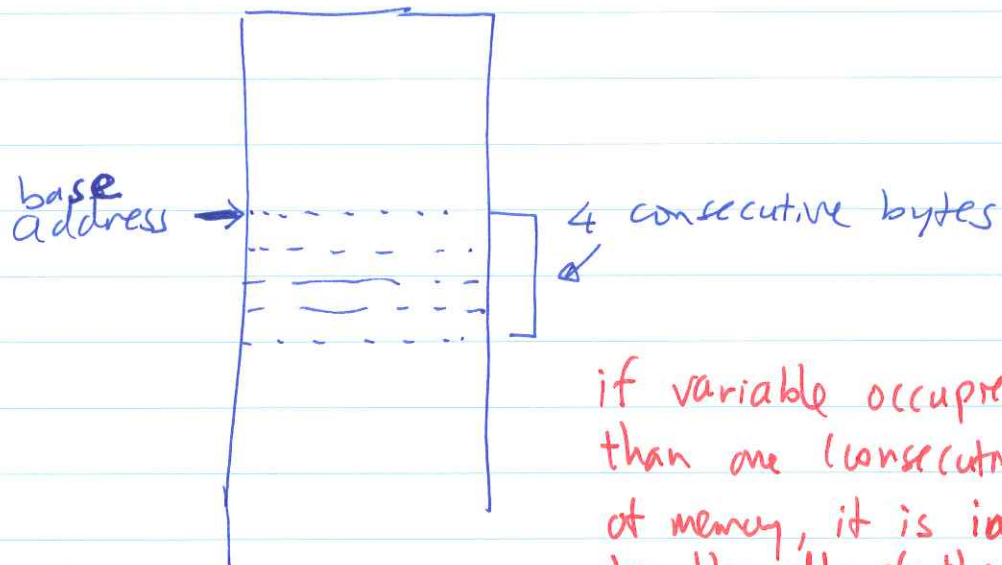 base
address
4 consecutive bytes
if variable occupies
than one (consecutiv
of memory, it is